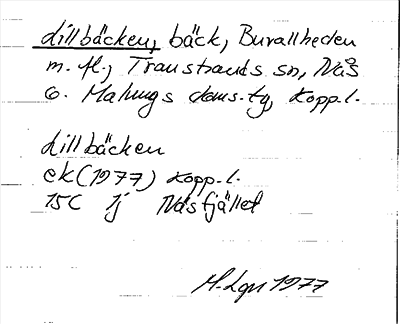 Lillbäcken, bäck, Burallheden
m. fl., Transtrands sn, Nås
o. Malungs doms.-tg, Kopp.l.
Lillbäcken
ek (1977) Kopp.l.
15C 1j Näsfjället
M. Lgn 1977